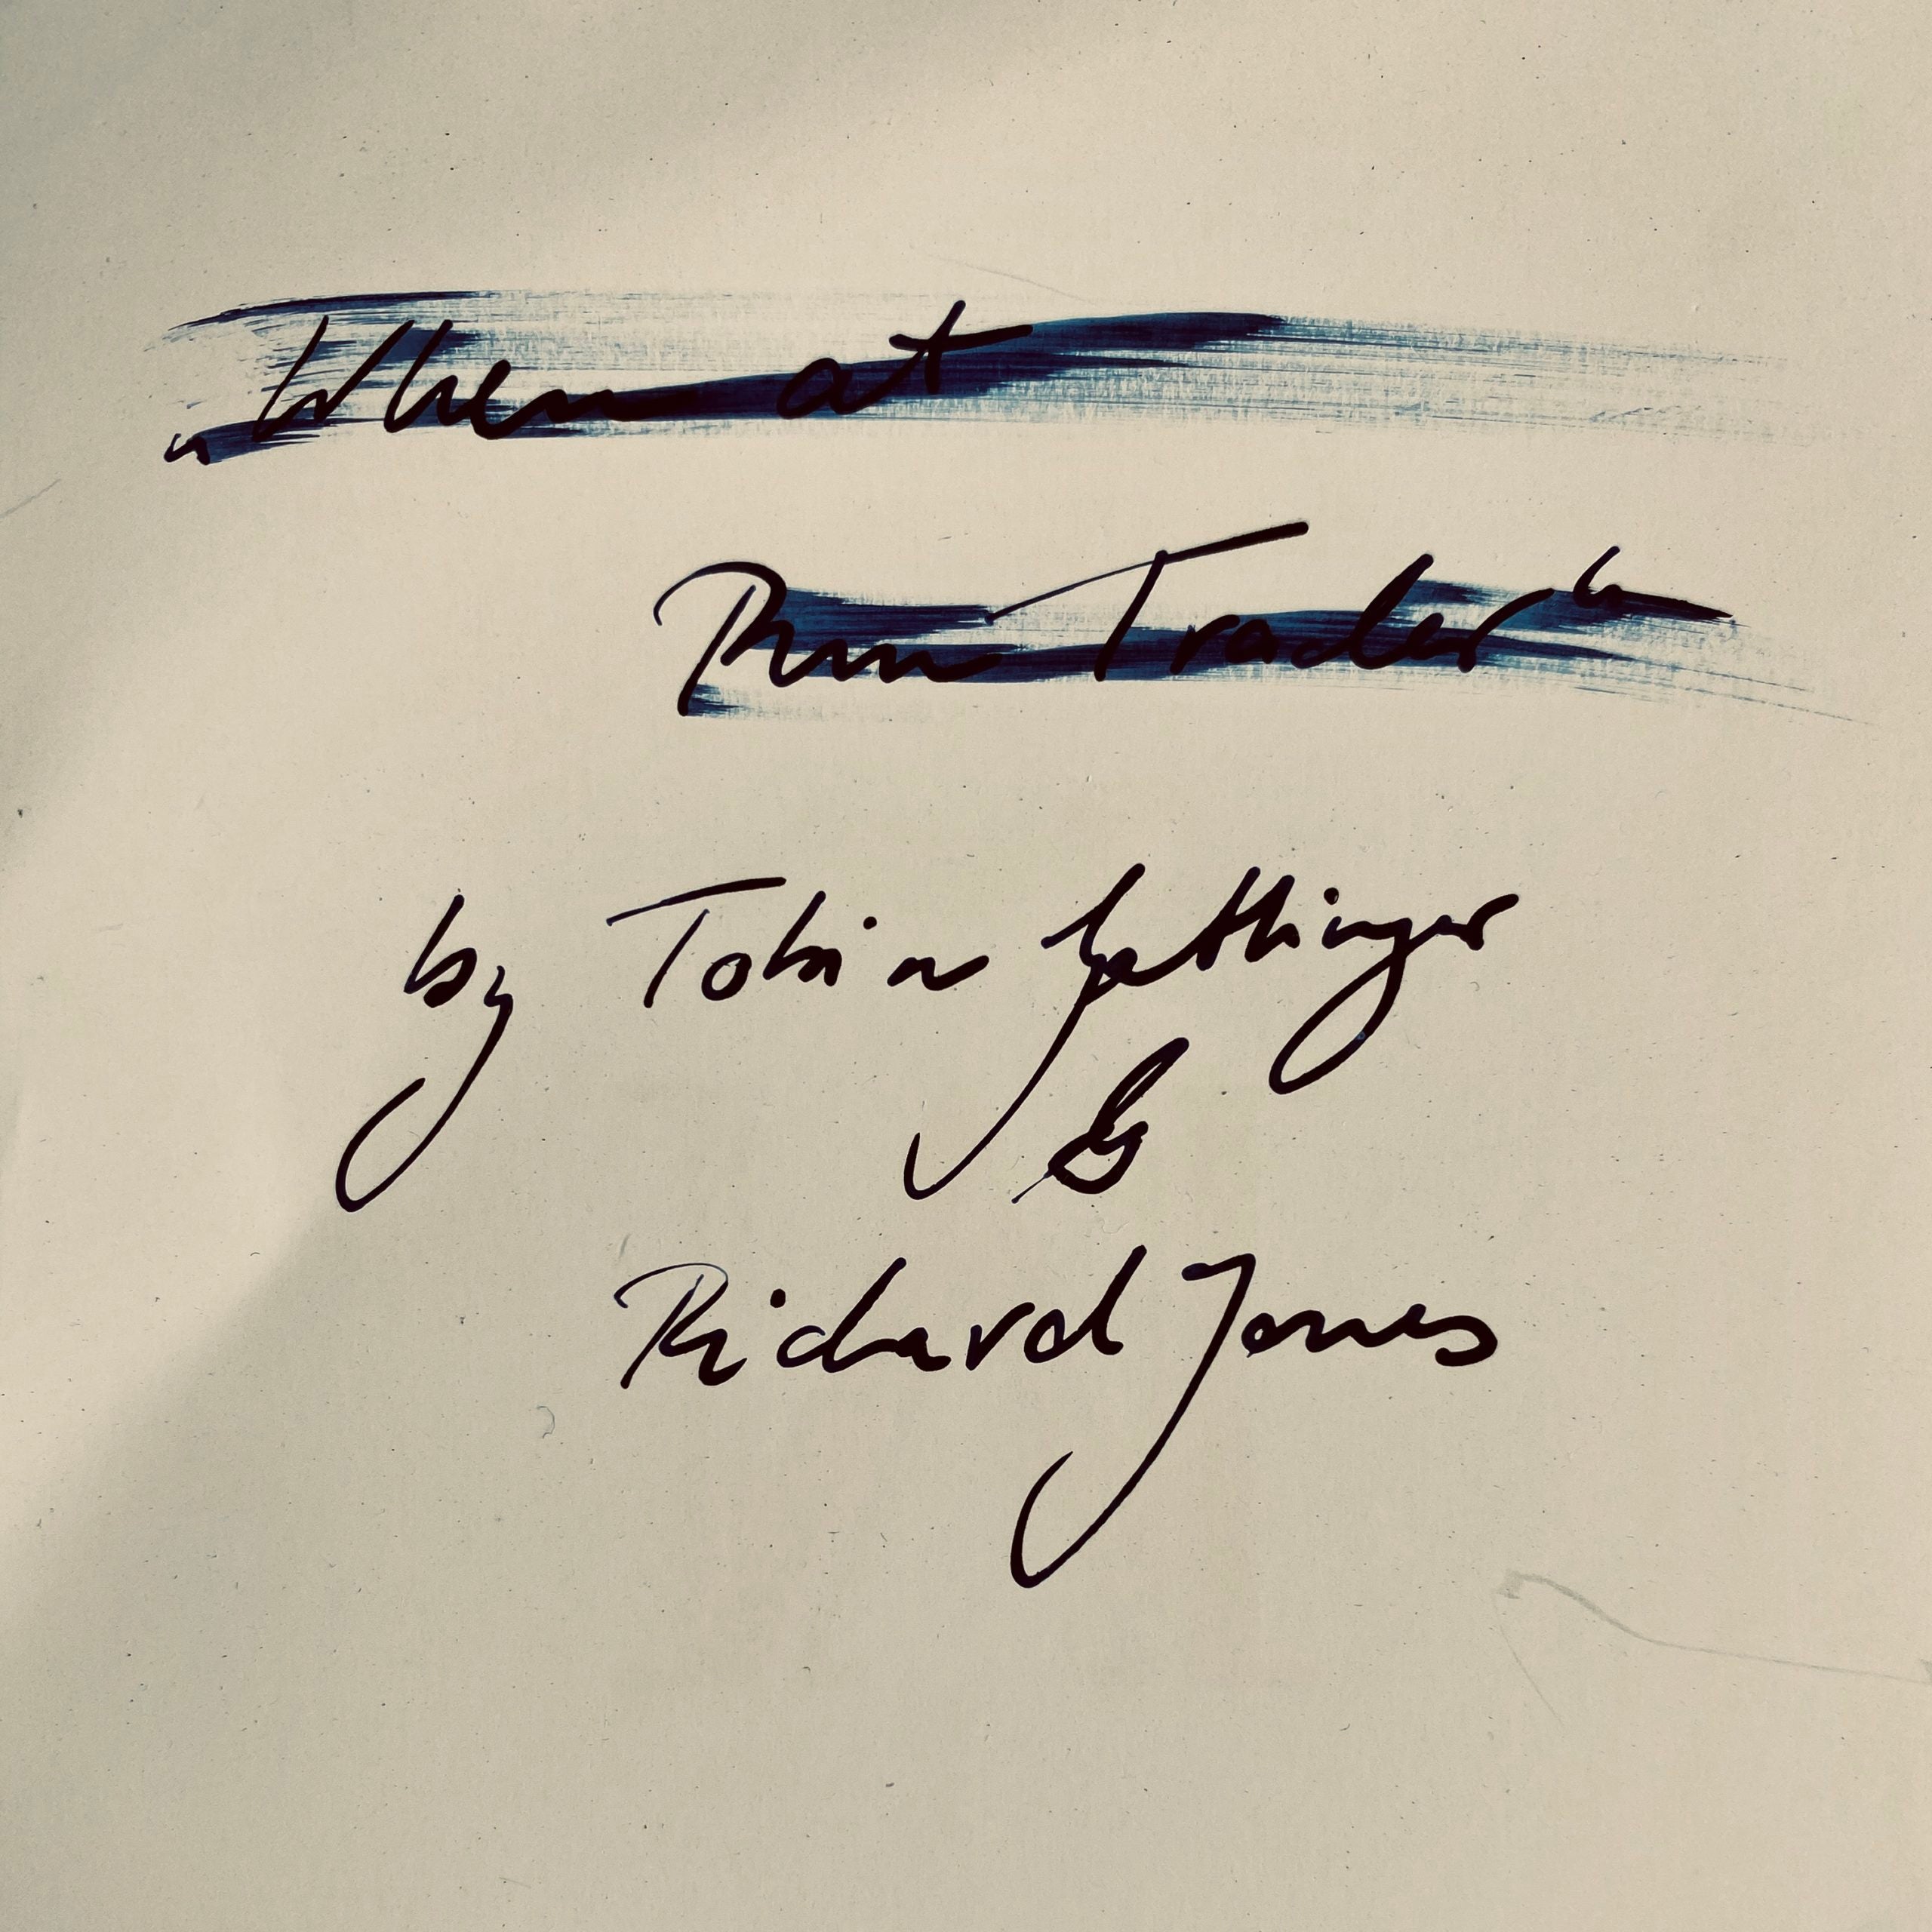 „When at
Rum Trader“
by Tobias Gettinger
&
Richard Jones